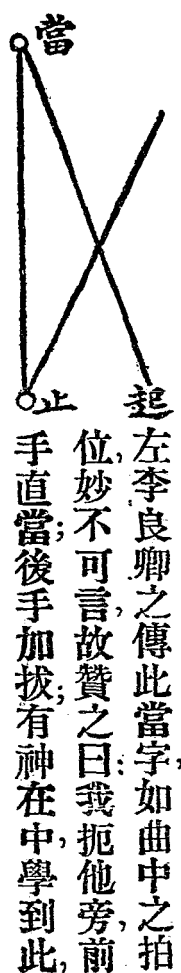 當
止
起
左李良卿之傳此當字,如曲中之拍
位,妙不可言,故贊之曰:我扼他旁,前
手直當;後手加拔;有神在中,學到此,